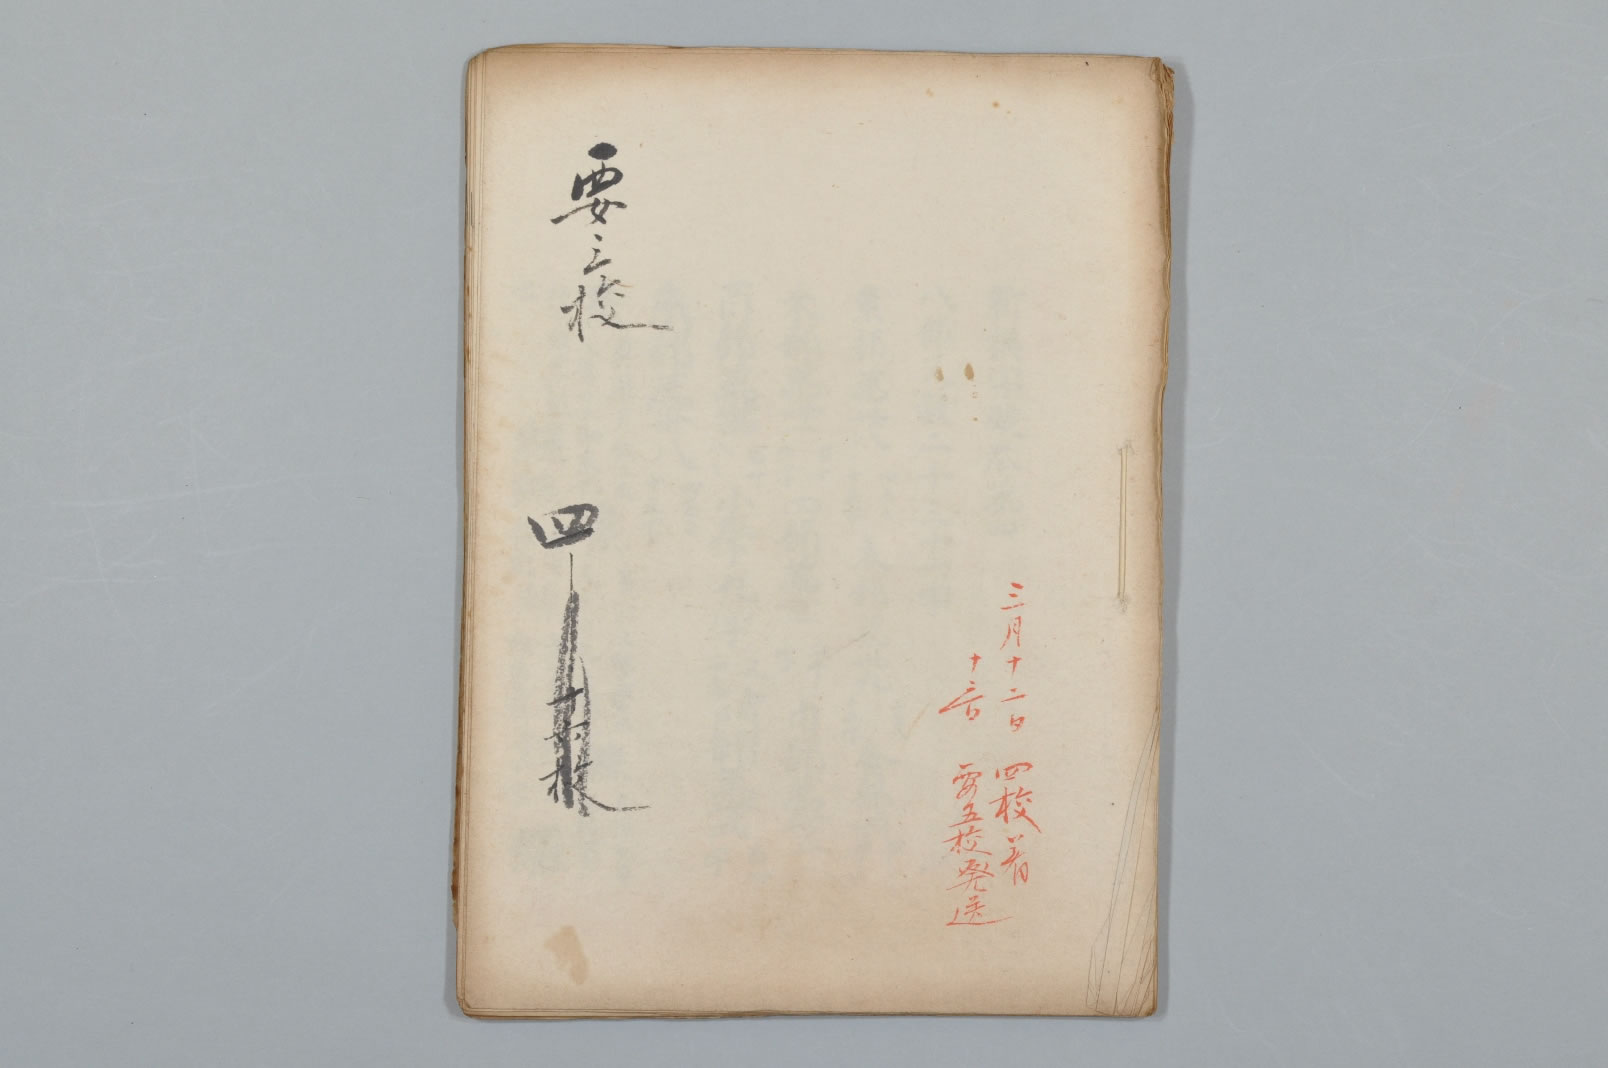 三月十二日 四校着
十三日 要五校発送
要三校
四